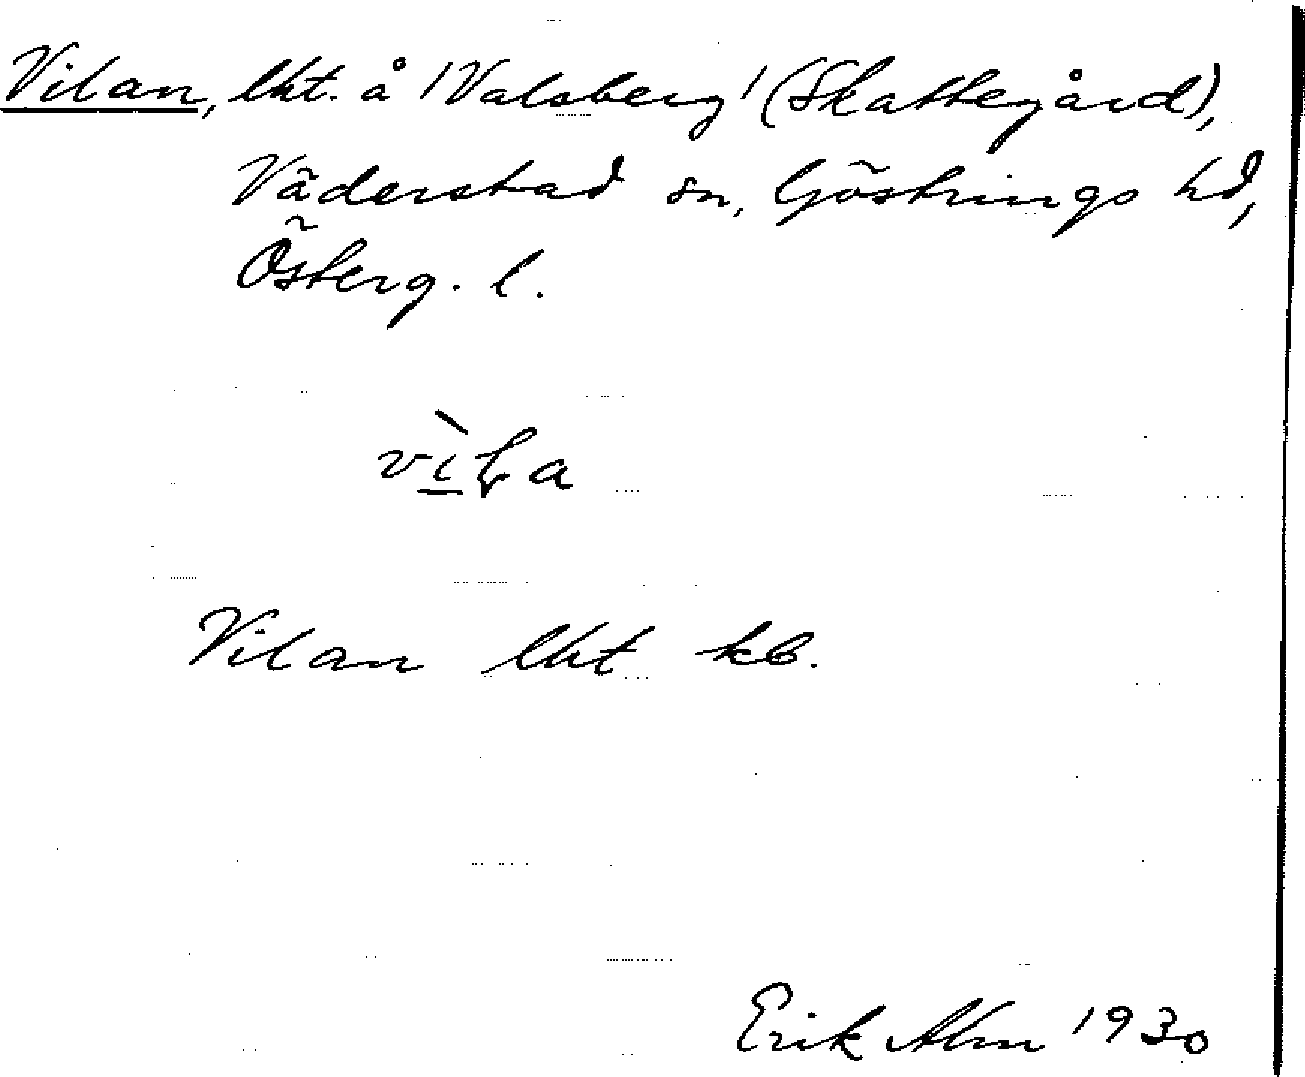 Vilan, lht. å 'Valsberg' (Skattegård),
Väderstad sn, Göstrings hd,
Österg. l.
vìɫa
Vilan lht kb.
Erik Alm 1930